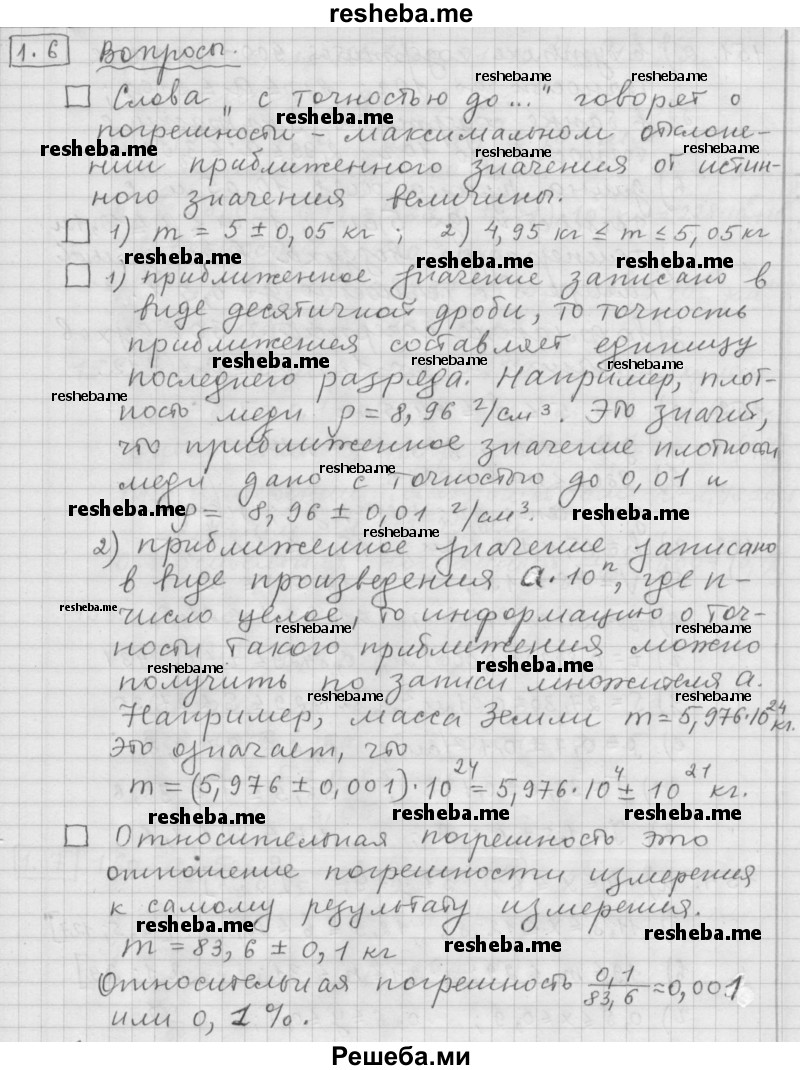 resheba.me
1.6 Вопросы.
resheba.me resheba.me
□ Слова „ с точностью до..." говорят о
resheba.me
погрешности – максимальном отклоне-
resheba.me resheba.me resheba.me
нии приближенного значения от истин-
ного значения величины.
□ 1) m = 5 ± 0,05 кг ; 2) 4,95 кг ≤ m ≤ 5,05 кг
resheba.me resheba.me resheba.me
□ 1) приближенное значение записано в
виде десятичной дроби, то точность
приближения составляет единицу
resheba.me resheba.me resheba.me
последнего разряда. Например, плот-
resheba.me
ность меди ρ = 8,96 г/см³. Это значит,
что приближенное значение плотности
resheba.me
меди дано с точностью до 0,01 и
ρ = 8,96 ± 0,01 г/см³.
resheba.me resheba.me resheba.me
2) приближенное значение записано
в виде произведения a·10ⁿ, где n –
resheba.me
число целое, то информацию о точ-
resheba.me resheba.me
ности такого приближения можно
resheba.me resheba.me
получить по записи множителя a.
resheba.me resheba.me
Например, масса Земли m = 5,976·10²⁴ кг.
Это означает, что
m = (5,976 ± 0,001)·10²⁴ = 5,976·10⁴ ± 10²¹ кг.
resheba.me resheba.me resheba.me
□ Относительная погрешность это
отношение погрешности измерения
к самому результату измерения.
resheba.me resheba.me
m = 83,6 ± 0,1 кг
resheba.me
Относительная погрешность 0,1/83,6 ≈ 0,001
или 0,1%.
Решеба.ми